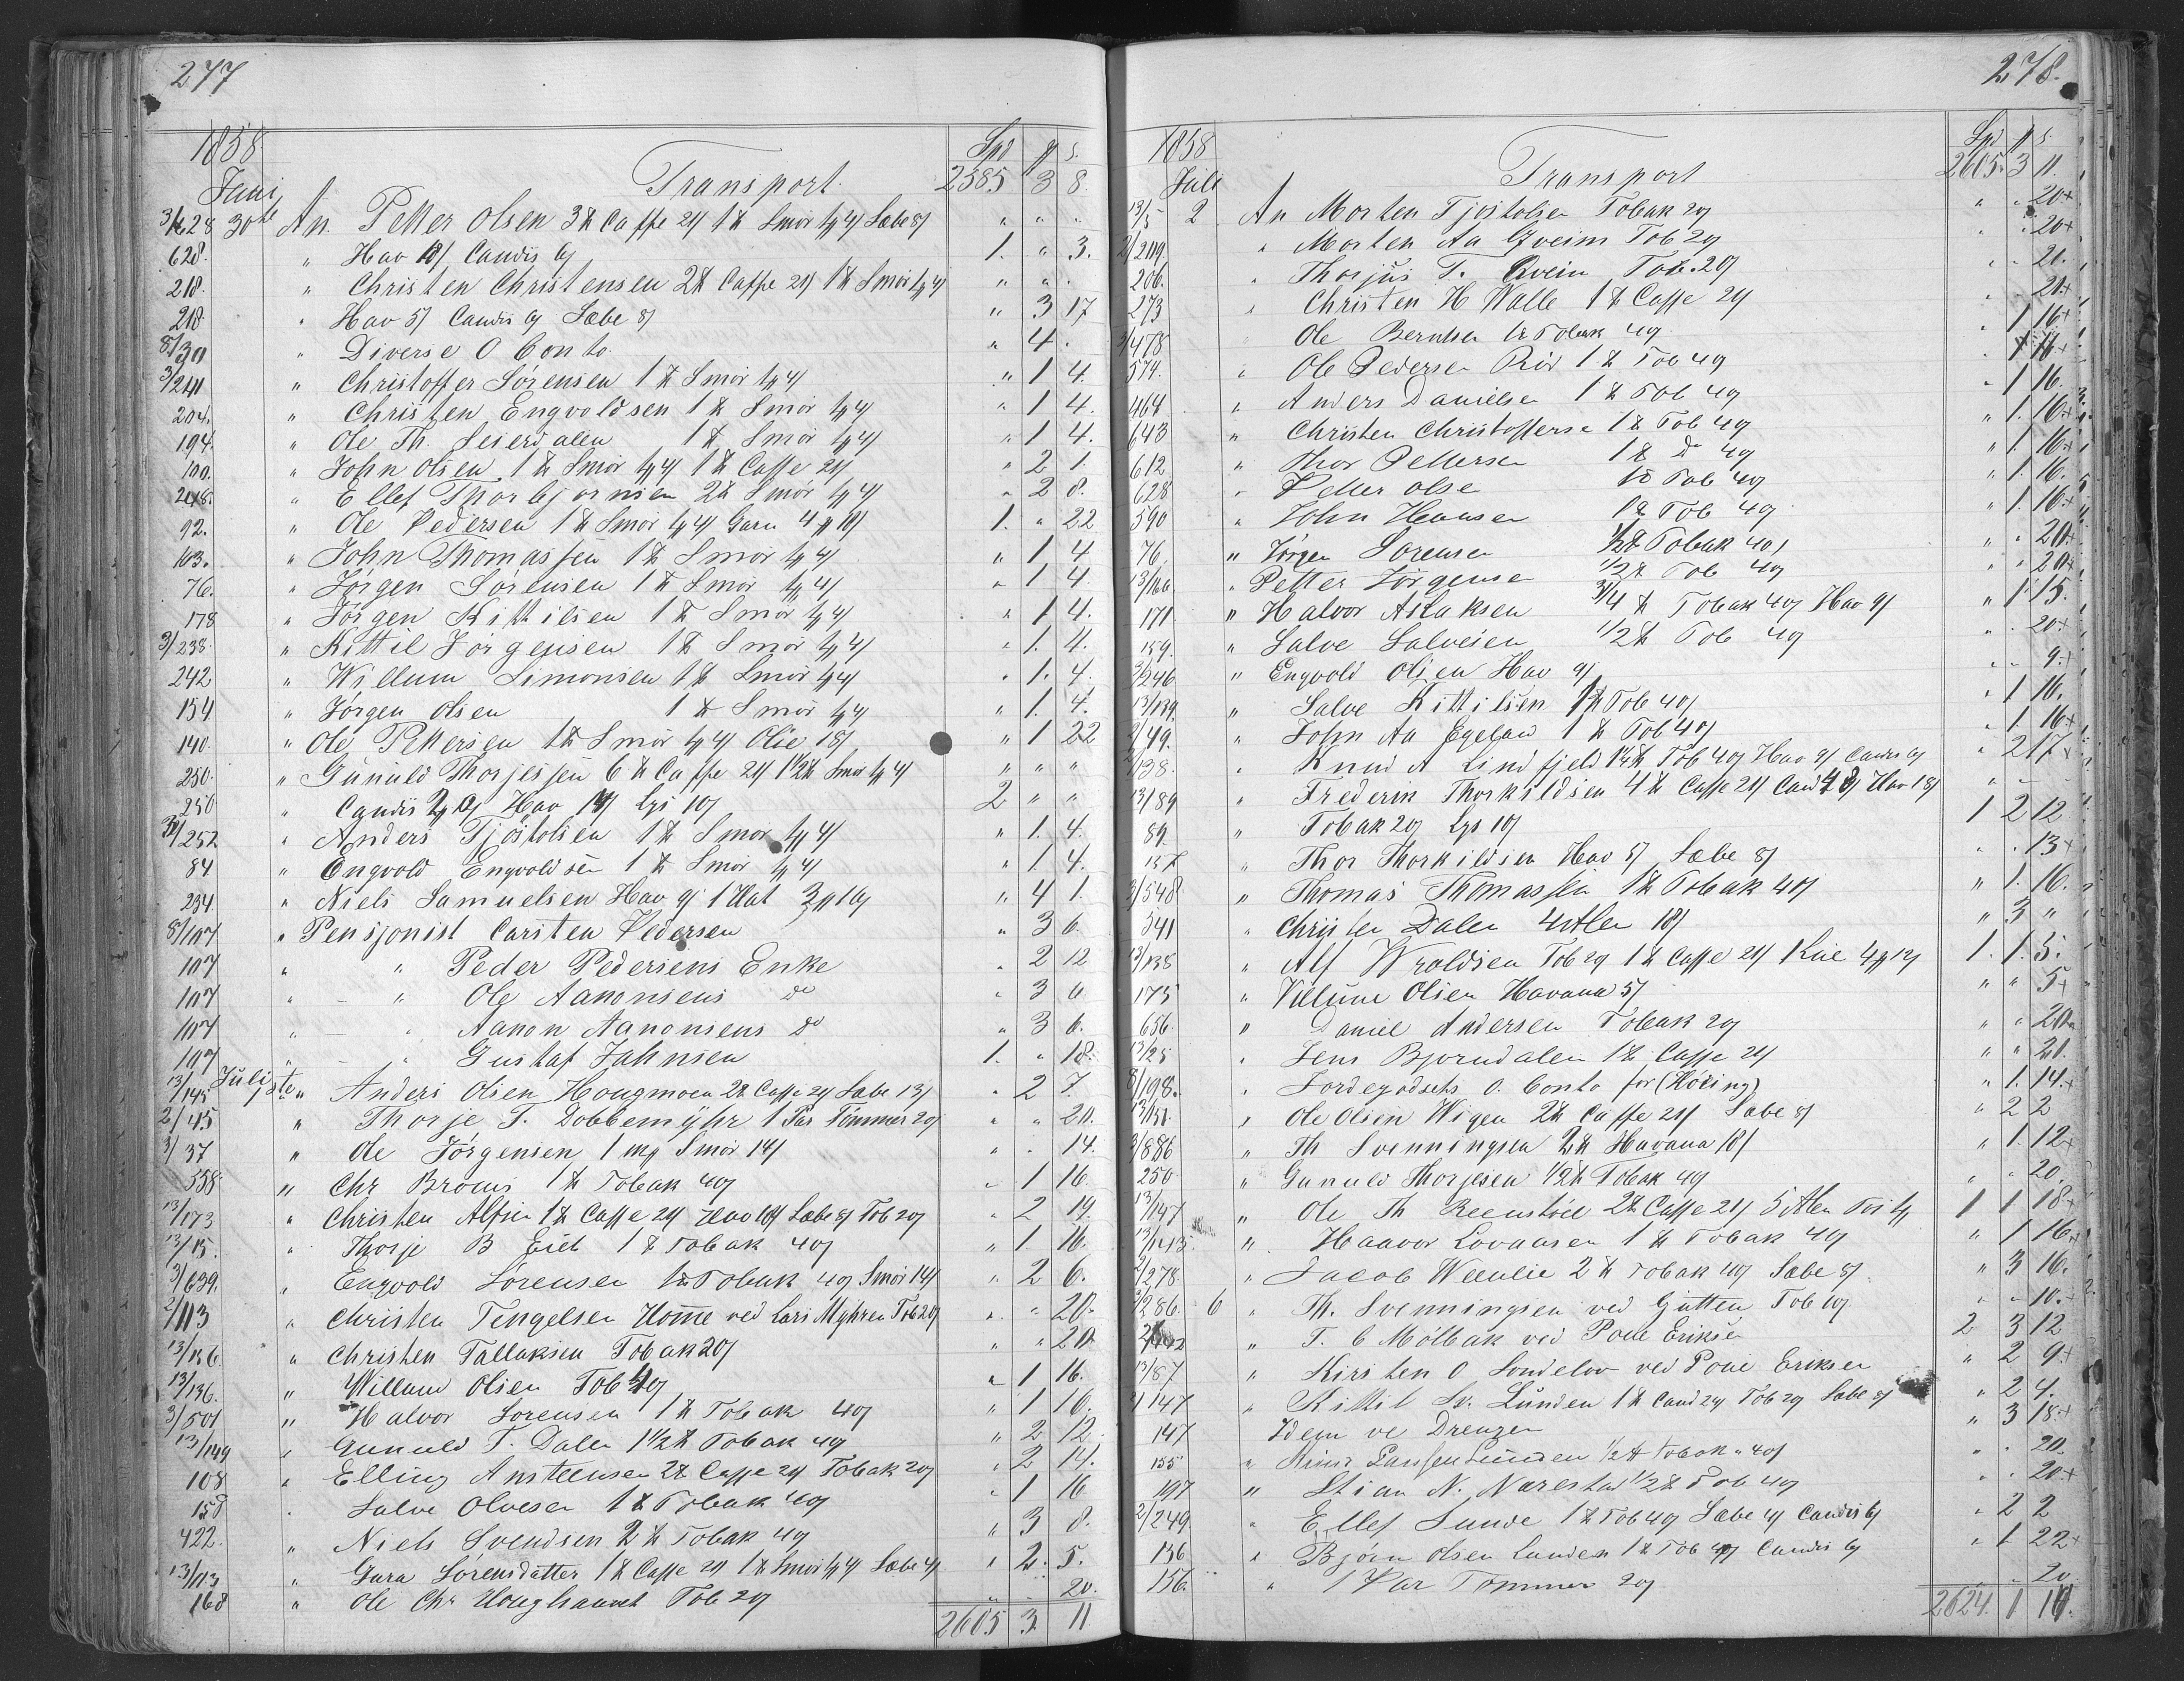 277
1858
Spd # s
Transport 2585 3 8
Juni
3/628 30te An Petter Olsen 3 ℔ Caffe 24/ 1 ℔ Smør 1/4/ Sæbe 8/ " " "
628 " Hav 18/ Candis 6/ 1. " 3.
218. " Christen Christensen 2 ℔ Caffe 24/ 1 ℔ Smør 1/4/ " " "
218 " Hav 5/ Candis 6/ Sæbe 8/ " 3 17
8/30 " Diverse O Conto " 4 "
3/241 " Christoffer Sørensen 1 ℔ Smør 1/4/ " 1 4.
204. " Christen Engvoldsen 1 ℔ Smør 1/4/ " 1 4.
194. " Ole Th. Seierdalen 1 ℔ Smør 1/4/ " 1 4.
100. " John Olsen 1 ℔ Smør 1/4/ 1 ℔ Caffe 24/ " 2 1.
248. " Ellef Thorbjørnsen 2 ℔ Smør 1/4/ " 2 8.
92. " Ole Pedersen 1 ℔ Smør 1/4/ Garn 4 # 18/ 1. " 22
163. " John Thomassen 1 ℔ Smør 1/4/ " 1 4
76. " Jørgen Sørensen 1 ℔ Smør 1/4/ " 1 4.
178 " Jørgen Kittilsen 1 ℔ Smør 1/4/ " 1 4.
3/238. " Kittil Jørgensen 1 ℔ Smør 1/4/ " 1. 4.
242 " Willum Simonsen 1 ℔ Smør 1/4/ " 1. 4.
154 " Jørgen Olsen 1 ℔ Smør 1/4/ " 1. 4.
140. " Ole Pettersen 1 ℔ Smør 1/4/ Olie 18/ " 1 22
250. " Gunuld Thorjessen 6 ℔ Caffe 24/ 1 1/2 ℔ Smør 1/4/ " " "
250 " Candis Hav Lys 10/ 2 " "
252 " Anders Tjøstolsen 1 ℔ Smør 1/4/ " 1. 4.
84 " Engvold Engvoldsen 1 ℔ Smør 1/4/ " 1. 4.
234. " Niels Samuelsen Hav 9/ 1 Hat 3 # 16/ " 4 1.
8/107 " Pensjonist Carsten Pedersen " 3 6.
107 " " Peder Pedersens Enke " 2 12
107 " " Ole Aanonsens do " 3 6
107 " " Aanon Aanonsens do " 3 6.
107 " " Gustaf Jahnsen 1. " 18.
13/145 Juli 1ste " Anders Olsen Hougmoen 2 ℔ Caffe 24/ Sæbe 13/ " 2 7.
2/45 " Thorje T. Dobbemyhr 1 Par Tømmer 20/ " " 20.
3/37 " Ole Jørgensen 1 Mrk Smør 14/ " " 14.
558 " Chr Broens 1 ℔ Tobak 40/ " 1 16
13/173 " Christen Alfsen 1 ℔ Caffe 24/ Hav 10/ Sæbe 8/ Tob 20/ " 2 19.
13/15. " Thorje B Eieb 1 ℔ Tobak 40/ " 1. 16.
3/639. " Engvold Sørensen 1 ℔ Tobak 40/ Smør 14/ " 2 6.
2/113 " Christen Tengelsen Homme ved Lars Myhren Tob 20/ " " 20.
13/156 " Christen Tallaksen Tobak 20/ " " 20
13/136. " Willum Olsen Tob 40/ " 1 16.
3/501 " Halvor Sorensen 1 ℔ Tobak 40/ " 1 16.
13/149 " Gunuld T. Dalen 1 1/2 ℔ Tobak 40/ " 2 12.
108 " Elling Ansteensen 2 ℔ Caffe 24/ Tobak 20/ " 2 14.
158 " Salve Olvesen 1 ℔ Tobak 40/ " 1 16
422. " Niels Svendsen 2 ℔ Tobak 40/ " 3 8.
13/113 " Gura Sørensdatter 1 ℔ Caffe 24/ 1 ℔ Smør 1/4/ Sæbe 4/ " 2. 5.
168 " Ole Chr Houghanvet Tob 20/ " " 20.
2605 3. 11
278.
1858
Spd # s.
Transport 2605. 3 11.
Juli
13/5 2 An Morten Tjøstolsen Tobak 20/ " " 20+
2/209 " Morten Aa Gveim Tob 20/ " " 20+
206. " Thorjus T. Qvein Tob. 20/ " " 20.
273 " Christen H Walle 1 ℔ Caffe 24/ " " 21+
3/478 " Ole Berntsen 1 ℔ Tobak 40/ " 1 16+
574. " Ole Pedersen Rød 1 ℔ Tob 40/ " 1 16+
464 " Anders Danielsen 1 ℔ Tob 40/ " 1 16.
643 " Christen Christoffersen 1 ℔ Tob 40/ " 1. 16+
612 " Thor Pettersen 1 ℔ do 40/ " 1. 16+
628 " Petter Olse 1 ℔ Tob 40/ " 1. 16.
590 " John Hansen 1 ℔ Tob 40/ " 1. 16+
76 " Jørgen Sorensen 1/2 ℔ Tobak 40/ " " 20+
13/166 " Petter Jørgensen 1/2 ℔ Tob 40/ " " 20+
171 " Halvor Aslaksen 3/4 ℔ Tobak 40/ Hav 9/ " 1 15.
159. " Salve Salvesen 1/2 ℔ Tob 40/ " " 20+
3/246 " Engvold Olsen Hav 9/ " " 9.+
13/139. " Salve Kittilsen 1 ℔ Tob 40/ " 1 16.
2/49. " John Aa Egeland 1 ℔ Tob 40/ " 1. 16+
138. " Knud A Lindfjeld Tob 40/ Hav 9/ Candis 6/ " 2 17+
13/89 " Frederik Thorkildsen 4 ℔ Caffe 24/ Cand Hav 18/ " "
89. " Tobak 20/ Lys 10/ 1 2 12
157 " Thor Thorkildsen Hav 5/ Sæbe 8/ " " 13+
3/548 " Thomas Thomassen 1 ℔ Tobak 40/ " 1. 16.
541 " Christen Dalen 4 Alen 18/ " 3 "
13/138 " Alf Wroldsen Tob 20/ 1 ℔ Caffe 24/ 1 Kiie 4 # 12/ 1. 1. 5.
175 " Villum Olsen Havana 5/ " " 5+
656 " Daniel Andersen Tobak 20/ " " 20
13/25 " Jens Bjorndalen 1 ℔ Caffe 24/ " " 21.
8/198. " Jordegodsets O. Conto for (Høiing) " 1. 14.+
13/151. " Ole Olsen Wigen 2 ℔ Caffe 24/ Sæbe 8/ " 2 2
3/886 " Th Svenningsen 2 ℔ Havana 18/ " 1. 12+
250 " Gunuld Thorjesen 1/2 ℔ Tobak 40/ " " 20.
13/147 " Ole Th Reenstøel 2 ℔ Caffe 24/ 5 Alen 1 1 18+
13/143 " Haavor Lovaasen 1 ℔ Tobak 40/ " 1 16+
2/278 " Jacob Weenlie 2 ℔ Tobak 40/ Sæbe 8/ " 3 16.
3/286. 6 " Th. Svenningsen ved Gutten Tob 10/ " " 10.+
" T. C Mølbak ved Povel Eriksen 2 3 12
13/87 " Kirsten O Sondelov ved Povel Eriksen " 2 9.+
2/147 " Kittil Sv. Lunden 1 ℔ Cand 24/ Tob 20/ Sæbe 8/ " 2 4.
147 Idem ve Drengen " 3 18+
155 " Lunden 1/2 ℔ Tobak 40/ " " 20.
197 " Stian N. Narestad 1/2 ℔ Tob 40/ " " 20+
2/249 " Ellef Sunde 1 ℔ Tob 40/ Sæbe 4/ Candis 6/ " 2 2
136 " Bjørn Olsen Lunden 1 ℔ Tob 40/ Candis 6/ " 1 22+
156. " 1 Par Tømmer 20/ " " 20.
2624. 1 10.